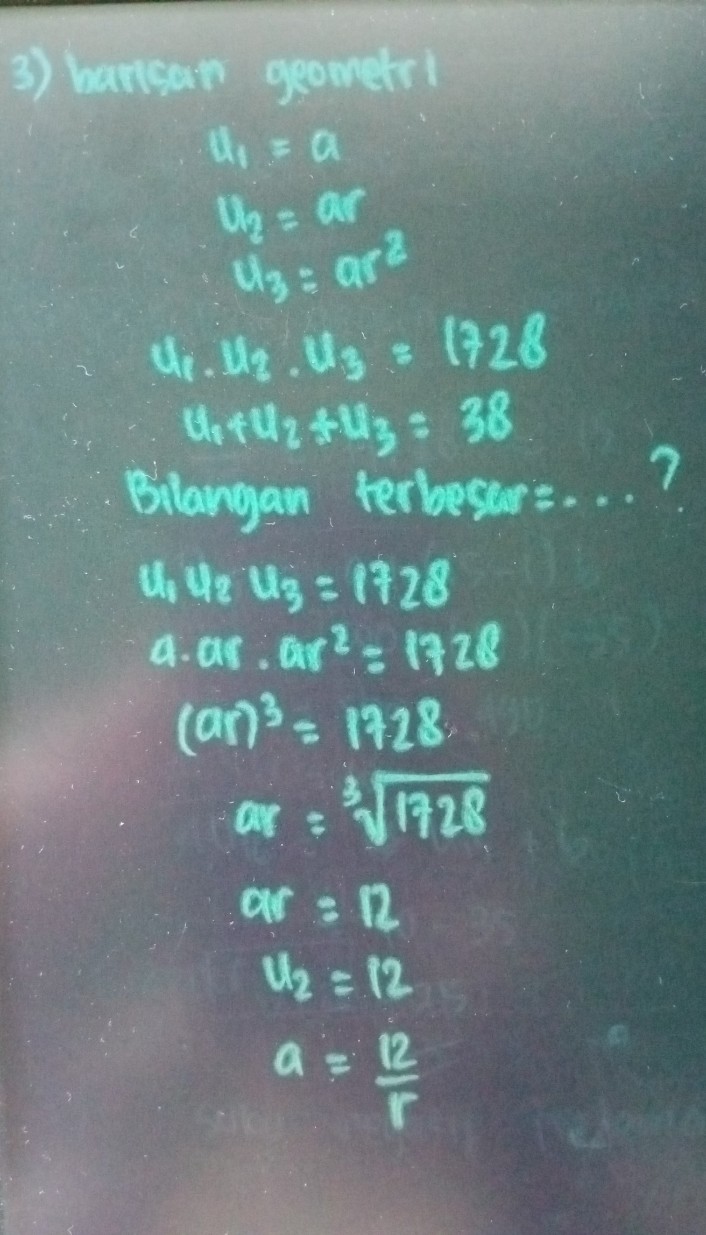 3) barisan geometri
U₁ = a
U₂ = ar
U₃ = ar²
U₁ . U₂ . U₃ = 1728
U₁ + U₂ + U₃ = 38
Bilangan terbesar = .... ?
U₁ U₂ U₃ = 1728
a . ar . ar² = 1728
(ar)³ = 1728
ar = ³√1728
ar = 12
U₂ = 12
a = 12/r